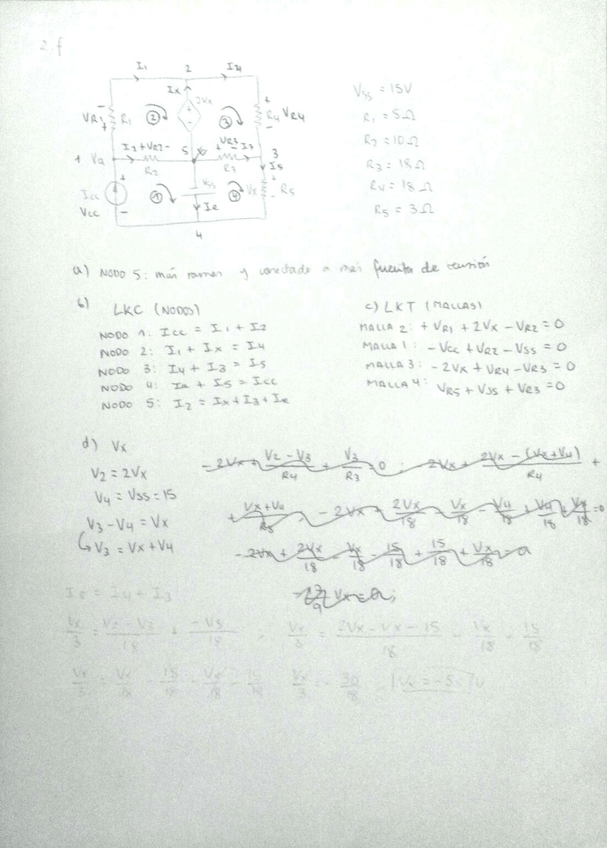 2.f
I1 2 I4
Ix
2Vx
VR1 R1 2 3 R4 VR4
I2 + VR2 - 5 + VR3 - I3
1 Va R2 R3 3
I5
Icc 1 Vss 4 Vx R5
Vcc Ie
4
Vss = 15V
R1 = 5Ω
R2 = 10Ω
R3 = 18Ω
R4 = 18Ω
R5 = 3Ω
a) NODO 5: más ramas y conectado a más fuentes de tensión
b) LKC (NODOS)
NODO 1: Icc = I1 + I2
NODO 2: I1 + Ix = I4
NODO 3: I4 + I3 = I5
NODO 4: Ie + I5 = Icc
NODO 5: I2 = Ix + I3 + Ie
c) LKT (MALLAS)
MALLA 2: + VR1 + 2Vx - VR2 = 0
MALLA 1: - Vcc + VR2 - VSS = 0
MALLA 3: - 2Vx + VR4 - VR3 = 0
MALLA 4: VR5 + VSS + VR3 = 0
d) Vx
V2 = 2Vx
V4 = VSS = 15
V3 - V4 = Vx
V3 = Vx + V4
- 2Vx + V2 - V3 / R4 + V3 / R3 = 0 ; - 2Vx + 2Vx - (Vx + V4) / R4 +
+ Vx + V4 / R3 ; - 2Vx + 2Vx / 18 - Vx / 18 - V4 / 18 + V4 / 18 + Vx / 18 = 0
- 2Vx + 2Vx / 18 - Vx / 18 - 15 / 18 + 15 / 18 + Vx / 18 = 0
Vx = 0;
I5 = I4 + I3
Vx / 3 = V2 - V3 / 18 + - V3 / 18 ; Vx / 3 = 2Vx - Vx - 15 / 18 - Vx / 18 - 15 / 18
Vx / 3 = Vx / 18 - 15 / 18 - Vx / 18 - 15 / 18 Vx / 3 = - 30 / 18 Vx = -5